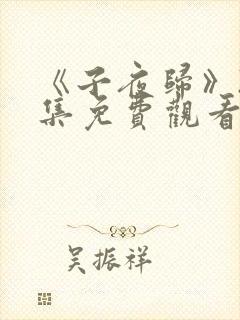 《子夜歸》
集免費觀看
吴振祥